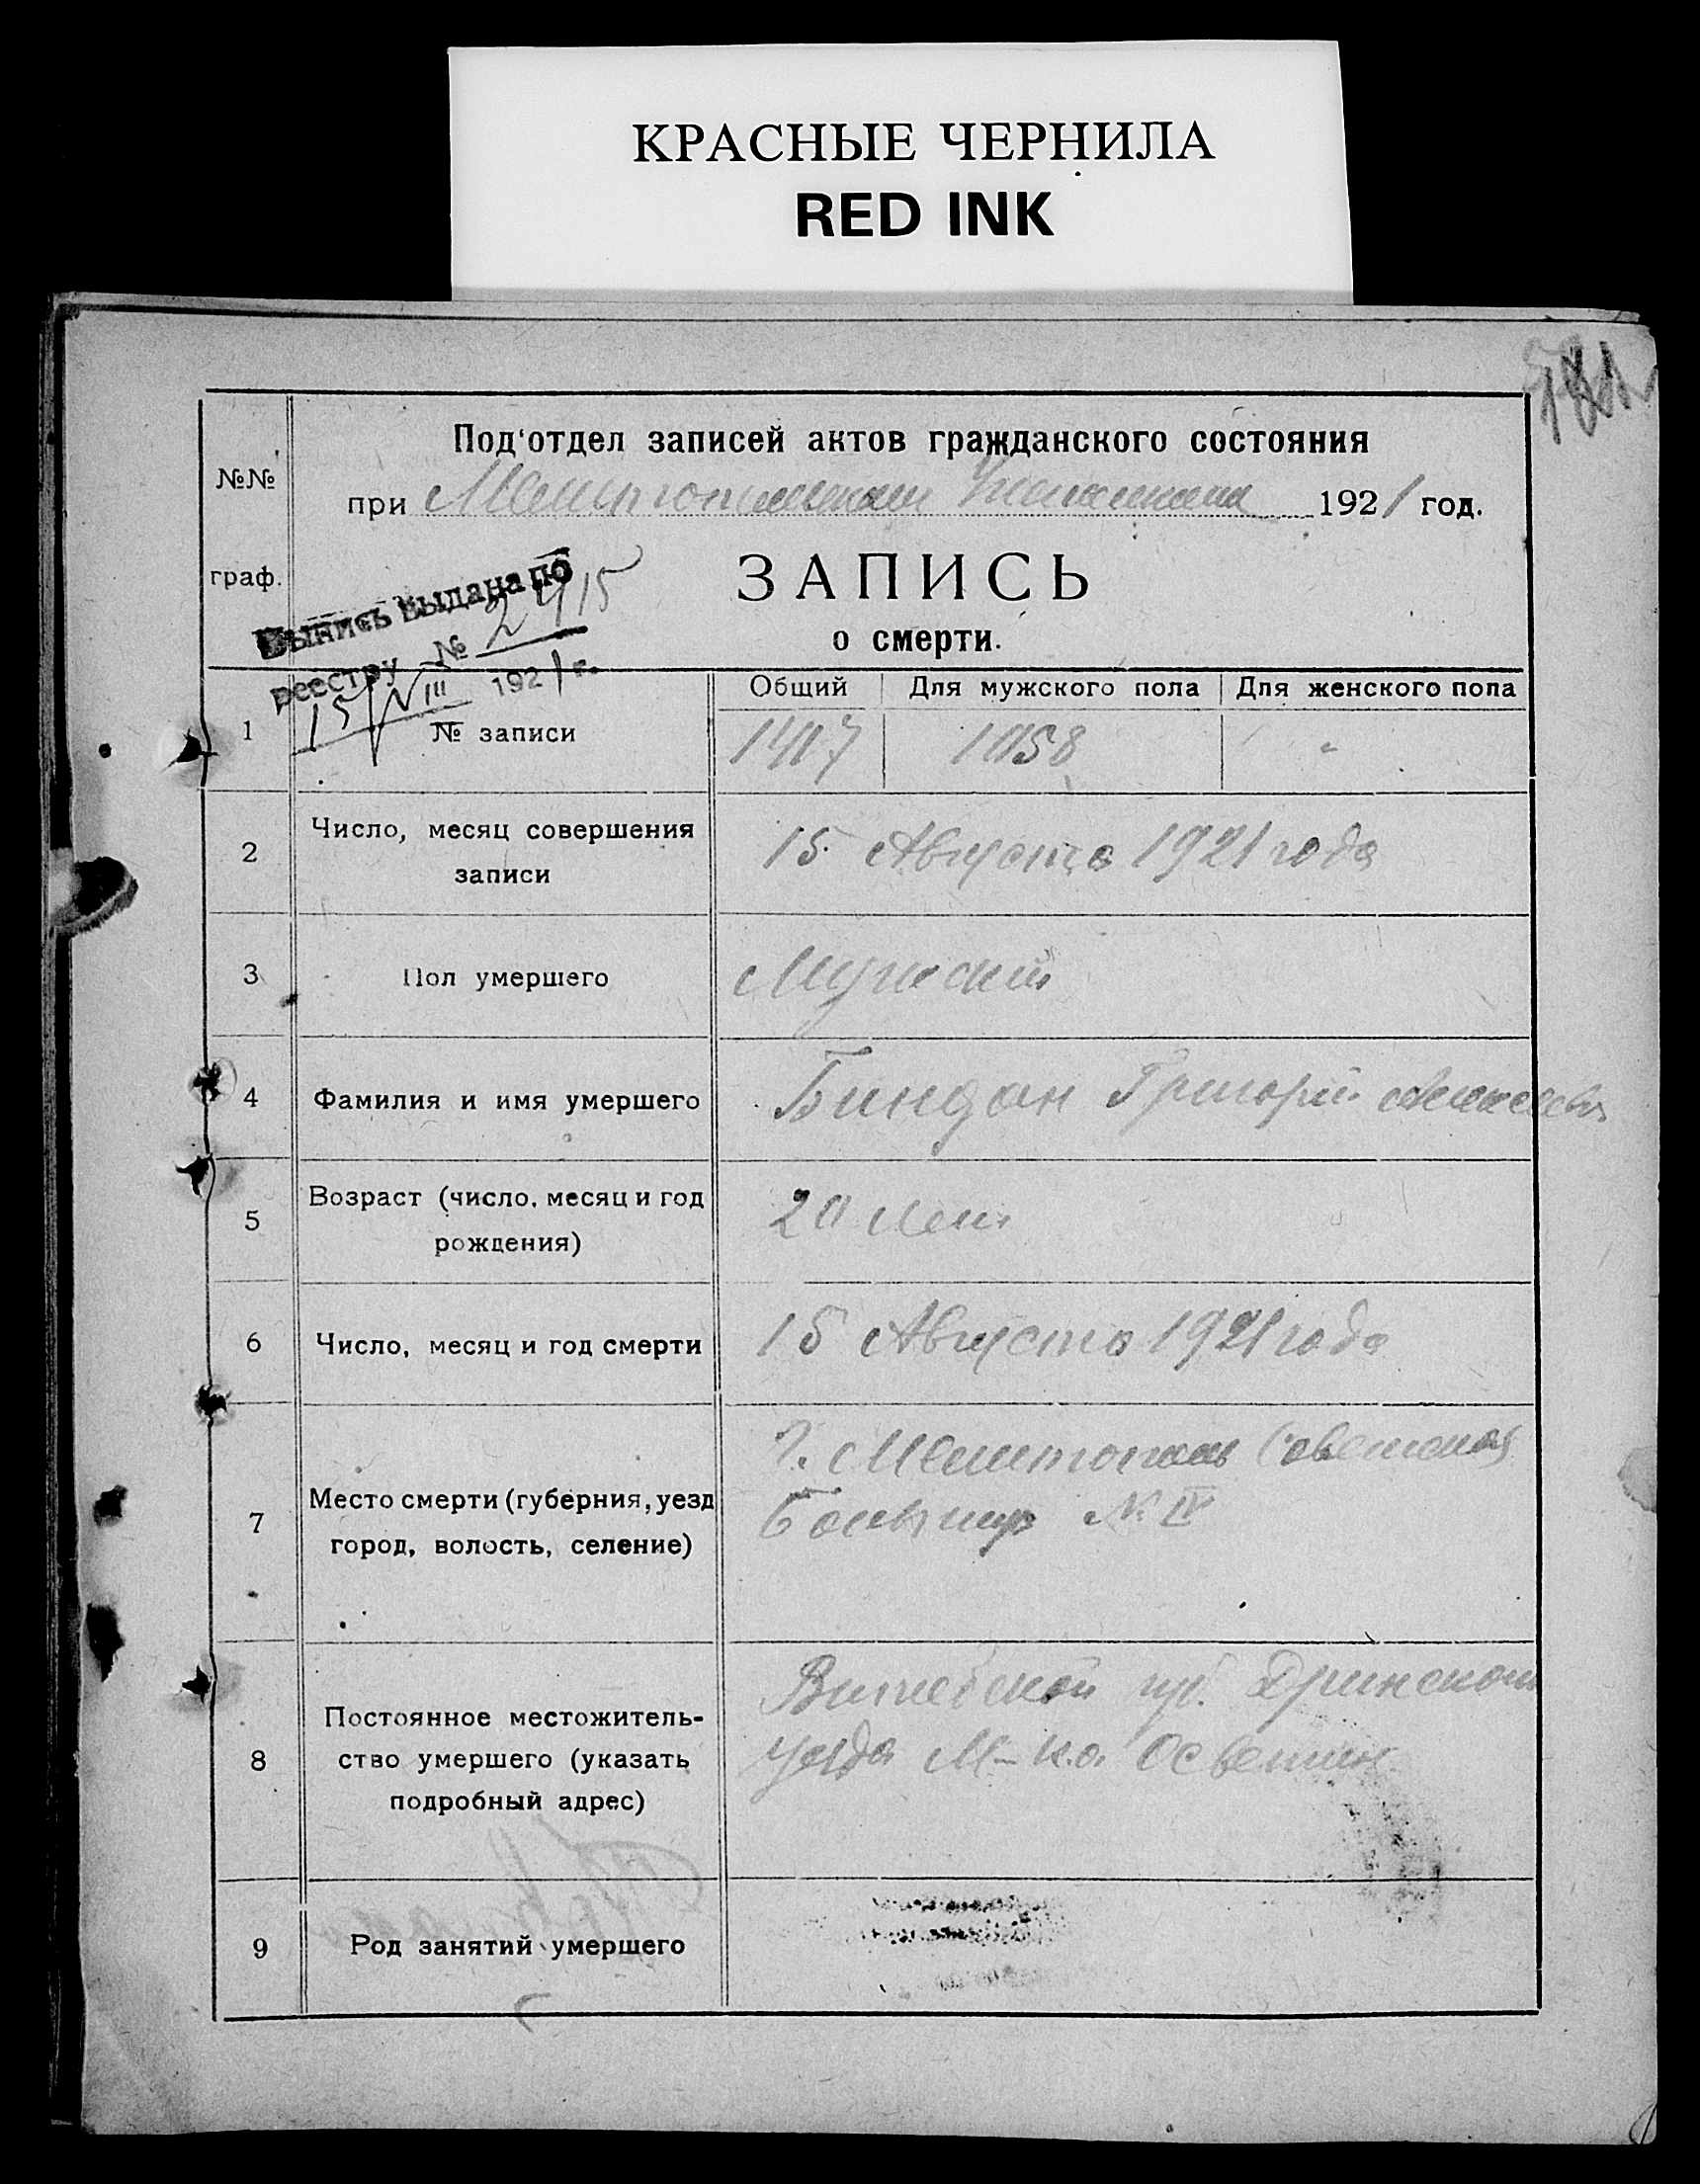 КРАСНЫЕ ЧЕРНИЛА
RED INK
Под'отдел записей актов гражданского состояния
№№
при Мелитопольском 1921 год.
граф.
ЗАПИСЬ
о смерти.
Выпись выдана по
реестру № 2415
15/VIII 1921 г.
Общий Для мужского пола Для женского пола
1 № записи 1407 1058 "
2 Число, месяц совершения
записи
15 Августа 1921 года
3 Пол умершего Мужской
4 Фамилия и имя умершего Биндан Григорий Алексеев
5 Возраст (число, месяц и год
рождения)
20 лет
6 Число, месяц и год смерти 15 Августа 1921 года
7 Место смерти (губерния, уезд
город, волость, селение)
Г. Мелитополь Советская
Больница № IV
8 Постоянное местожитель-
ство умершего (указать
подробный адрес)
Витебской губ. Дриского
уезда М-ко
9 Род занятий умершего